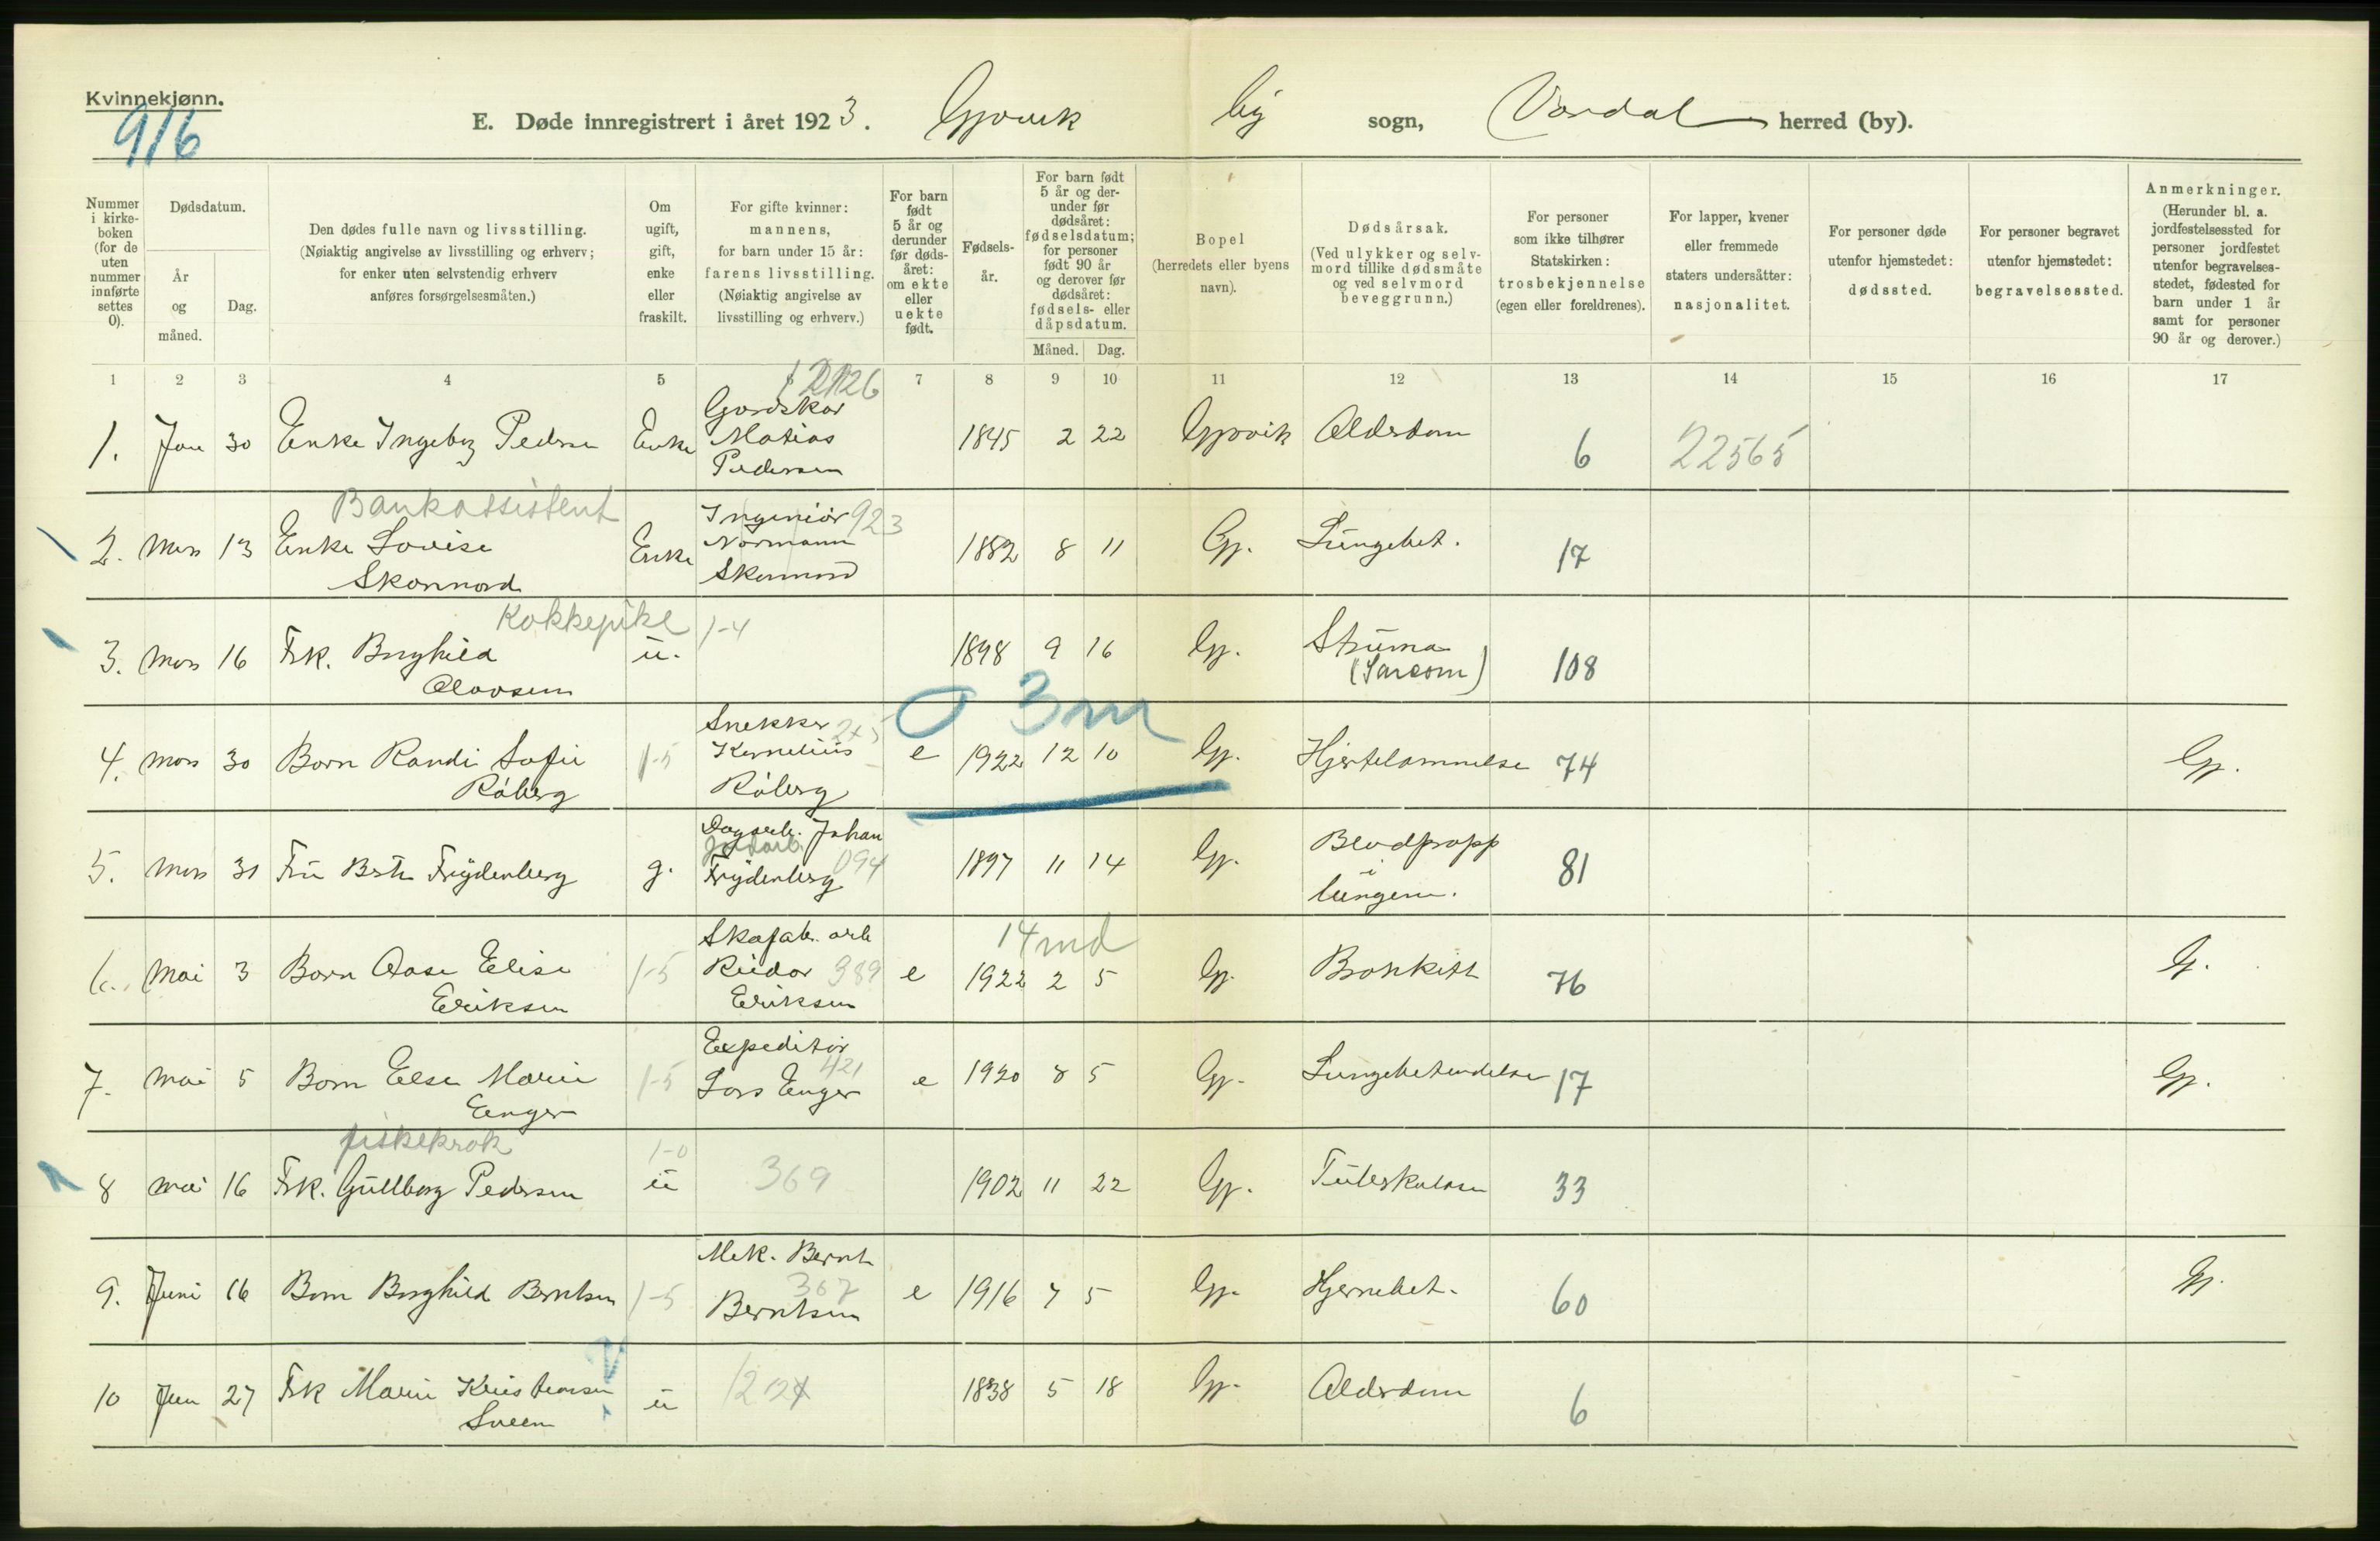 Kvinnekjønn.
916
E. Døde innregistrert i året 1923. Gjøvik by sogn, Vardal herred (by).
Nummer i kirkeboken (for de uten nummer innførte settes 0).
Dødsdatum.
År og måned.
Dag.
Den dødes fulle navn og livsstilling.
(Nøiaktig angivelse av livsstilling og erhverv;
for enker uten selvstendig erhverv
anføres forsørgelsesmåten.)
Om ugift, gift, enke eller fraskilt.
For gifte kvinner:
mannens,
for barn under 15 år:
farens livsstilling.
(Nøiaktig angivelse av
livsstilling og erhverv.)
For barn født 5 år og derunder før dødsåret: om ekte eller uekte født.
Fødselsår.
For barn født 5 år og derunder før dødsåret: fødselsdatum; for personer født 90 år og derover før dødsåret: fødsels- eller dåpsdatum.
Måned. Dag.
Bopel
(herredets eller byens
navn).
Dødsårsak.
(Ved ulykker og selvmord tillike dødsmåte og ved selvmord beveggrunn.)
For personer
som ikke tilhører
Statskirken:
trosbekjennelse
(egen eller foreldrenes).
For lapper, kvener
eller fremmede
staters undersåtter:
nasjonalitet.
For personer døde
utenfor hjemstedet:
dødssted.
For personer begravet
utenfor hjemstedet:
begravelsessted.
Anmerkninger.
(Herunder bl. a.
jordfestelsessted for
personer jordfestet
utenfor begravelsesstedet, fødested for
barn under 1 år
samt for personer
90 år og derover.)
1 2 3 4 5 6 7 8 9 10 11 12 13 14 15 16 17
1. Jan 30 Enke Ingeborg Pedersen Enke Gårdskar Matias Pedersen 1845 2 22 Gjøvik Alderdom 6 22565
Bankassistent
2. Mars 13 Enke Lovise Skonnord Enke Ingeniør Normann Skonnord 923 1882 8 11 Gj. Lungebet. 17
Kokkepike 1-4
3. Mars 16 Frk. Borghild Olavsen u. 1898 9 16 Gj. Struma (Sarcom) 108
0 3m
4. Mars 30 Barn Randi Sofie Råberg 1-5 Snekker Kornelius Råberg e 1922 12 10 Gj. Hjertelammelse 74 Gj.
5. Mars 31 Fru Frydenberg g. Dagarb. Johan Frydenberg Jordarb. 094 1897 11 14 Gj. Blodpropp i lungene. 81
14 md
6. Mai 3 Barn Aase Elise Eriksen 1-5 Skofabr. arb Reidar Eriksen 389 e 1922 2 5 Gj. Bronkitt 76 G.
7. Mai 5 Barn Else Marie Enger 1-5 Expeditør Lars Enger 421 e 1920 8 5 Gj. Lungebetendelse 17 Gj.
fiskekrok 1-0
8 Mai 16 Frk. Gullborg Pedersen u 369 1902 11 22 Gj. Tuberkulose 33
9. Juni 16 Barn Borghild Berntsen 1-5 Mek. Bernt Berntsen 367 e 1916 7 5 Gj. Hjernebet. 60 Gj.
10 Jun 27 Frk Marie Kristiansen Sveen u 1838 5 18 Gj. Alderdom 6